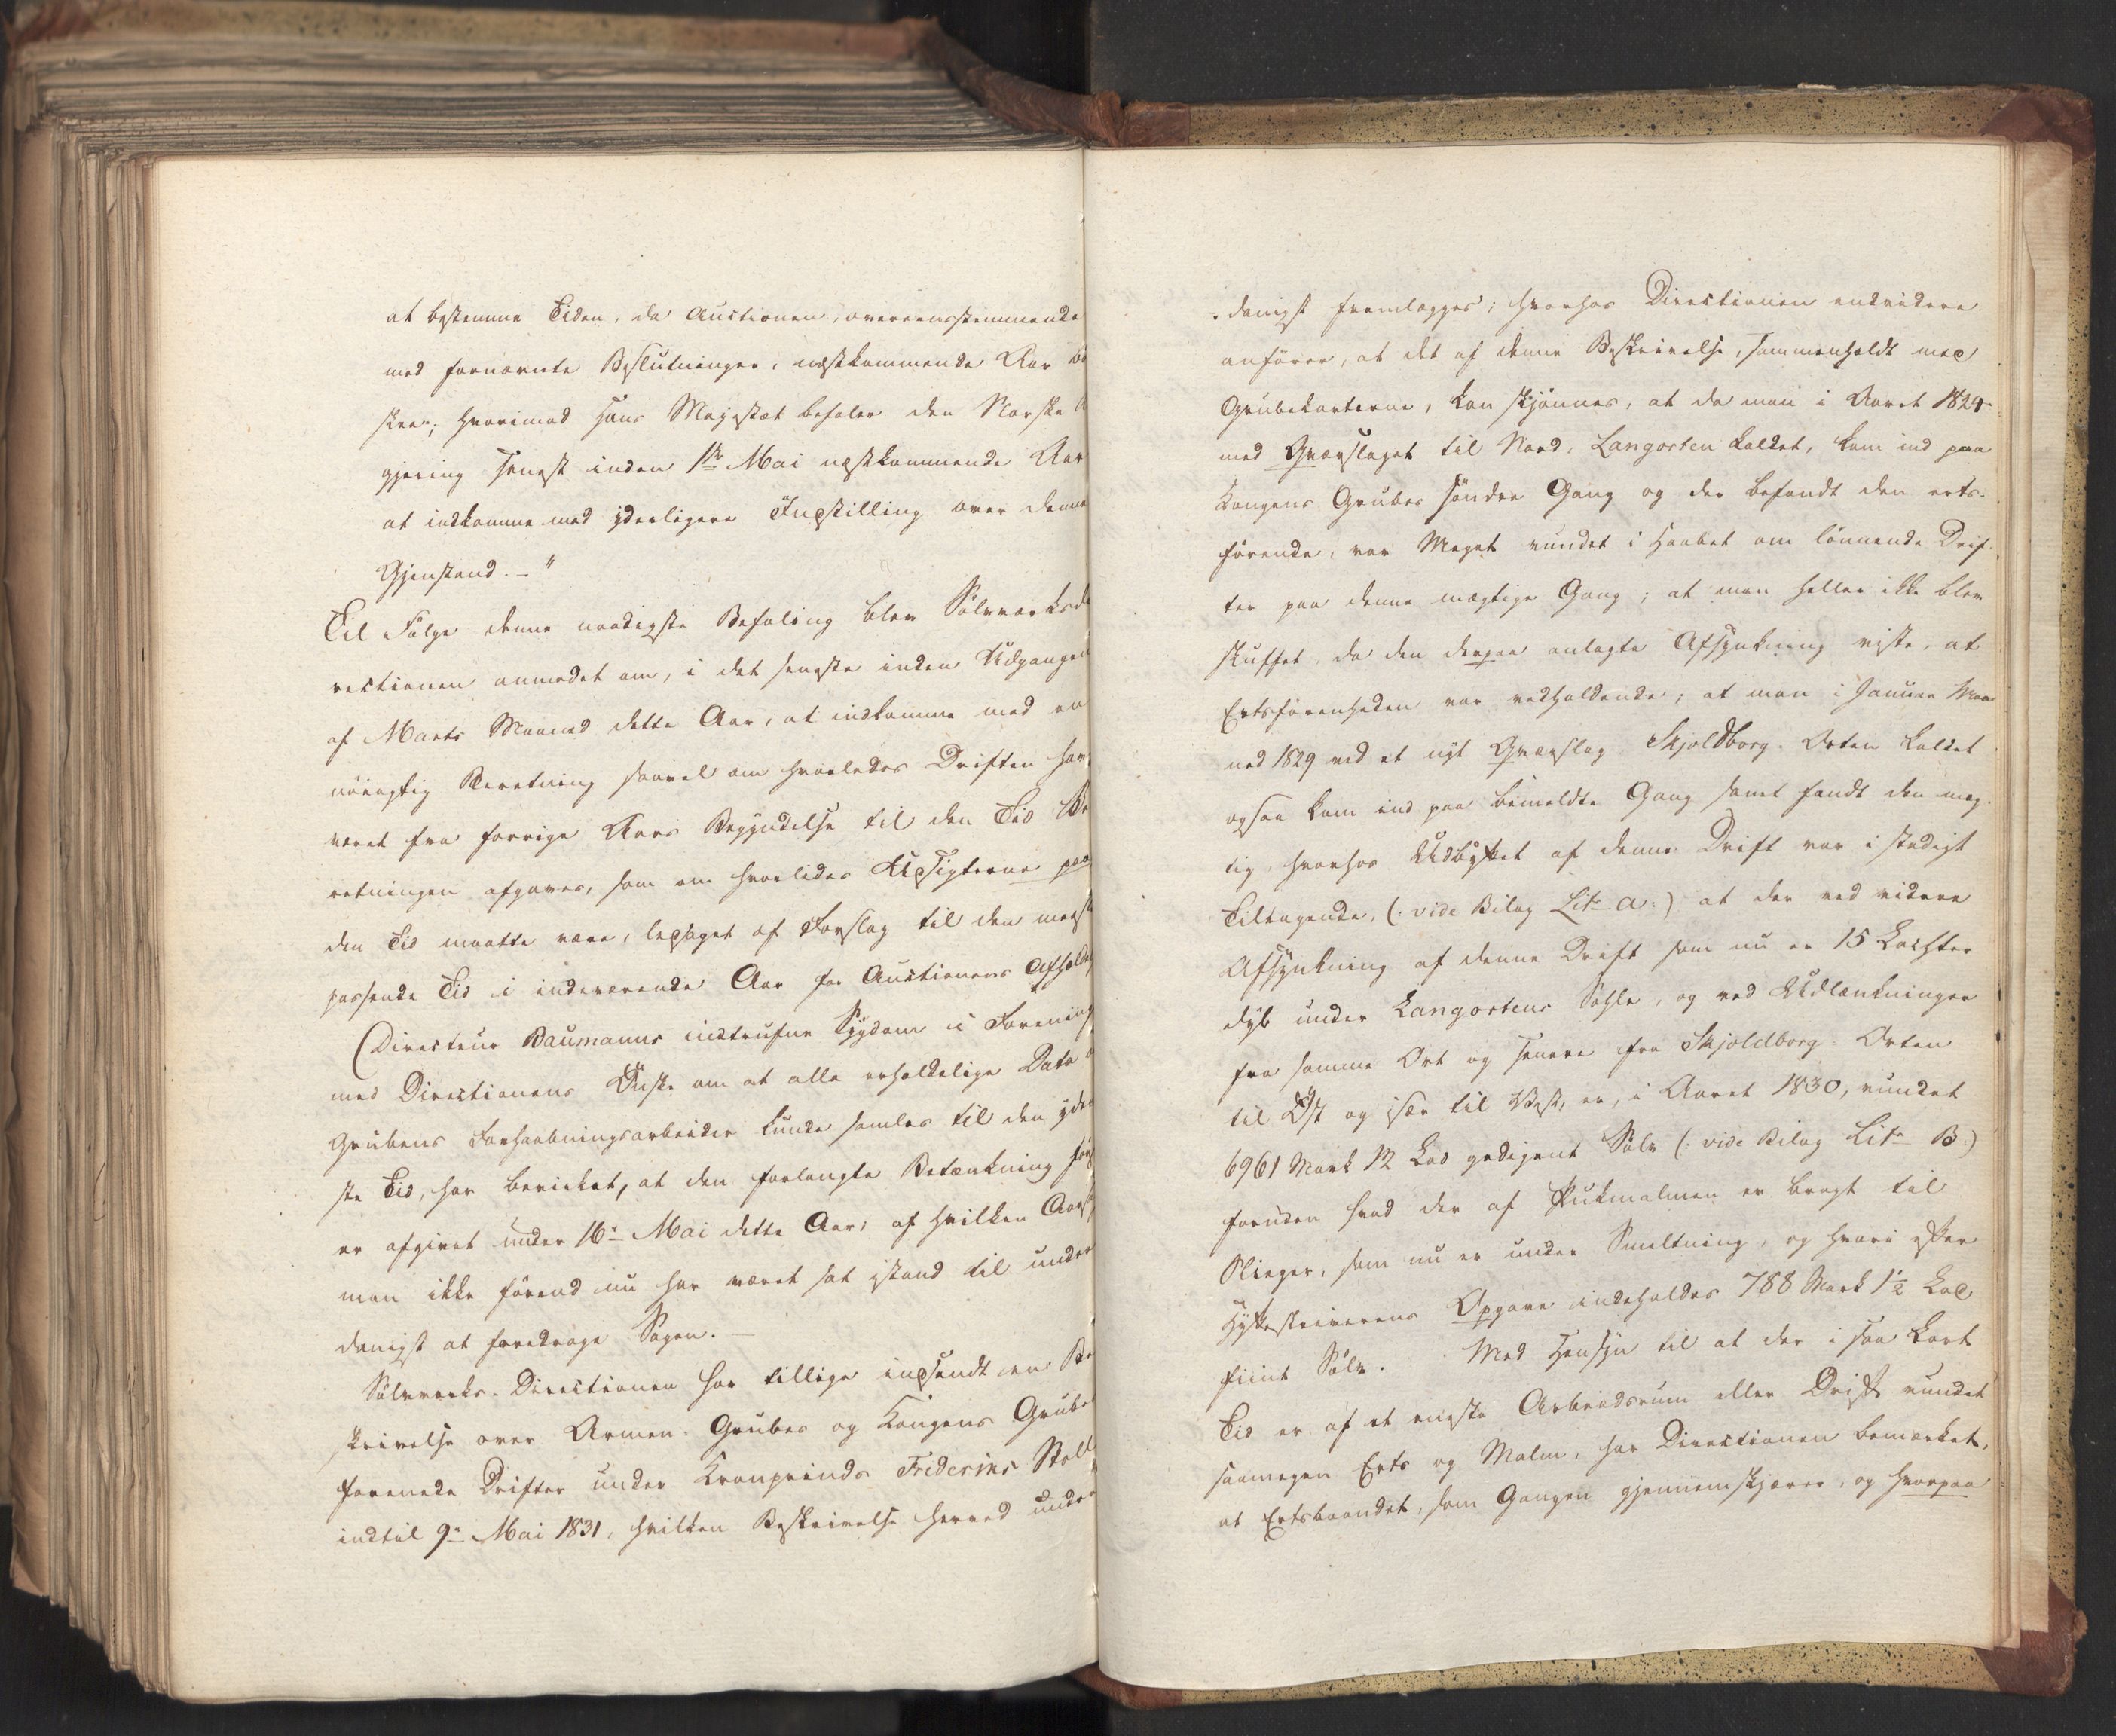 at bestemme Tiden, da Auctionen, overeensstemmende
med fornævnte Beslutninger, næstkommende Aar
skeer; hvorimod Hans Majestæt befaler den Norske
gjering senest inden 1ste Mai næstkommende Aar
at indkomme med yderligere Indstilling over denne
Gjenstand. –"
Til Følge denne naadigste Befaling blev Sölvværksdi
rectionen anmodet om, i det seneste inden Udgangen
af Marts Maaned dette Aar, at indkomme med en
nöiagtig Beretning saavel om hvorledes Driften har
været fra forrige Aars Begyndelse til den Tid Be
retningen afgaves, som om hvorledes Udsigterne paa
den Tid maatte være, ledsaget af Forslag til den meest
passende Tid i indeværende Aar for Auctionens Afhold
Directeur Baumanns indtrufne Sygdom i Forening
med Directionens Önske om at alle erholdelige Data
Grubens Forhaabningsarbeider kunde samles til den yder
ste Tid, har bevirket, at den forlangte Betænkning först
er afgivet under 16de Mai dette Aar; af hvilken Aarsag
man ikke förend nu har været sat istand til under
danigst at foredrage Sagen. —
Sölvværks-Directionen har tillige indsendt en Be
skrivelse over Armen-Grubes og Kongens Grubes
forenede Drifter under Kronprinds Frideriks Stoll
indtil 9de Mai 1831, hvilken Beskrivelse herved under
danigst fremlægges; hvorhos Directionen endvidere
anförer, at det af denne Beskrivelse, sammenholdt med
Grubekarterne, kan skjönnes, at da man i Aaret 1824
med Qværslaget til Nord, Langorten kaldet, kom ind paa
Kongens Grubes söndre Gang og der befandt den erts-
förende, var Meget vundet i Haabet om lönnende Drif-
ter paa denne mægtige Gang; at man heller ikke blev
skuffet, da den derpaa anlagte Afsynkning viste, at
Ertsförenheden var vedholdende; at man i Januar Maa
ned 1829 ved et nyt Qværslag Skjoldborg-Orten kaldet
ogsaa kom ind paa bemeldte Gang samt fandt den mæg-
tig, hvorhos Udbyttet af denne Drift var i stedigt
Tiltagende, (: vide Bilag Litr a:) at der ved videre
Afsynkning af denne Drift som nu er 15 Lachter
dyb under Langortens Sohle, og ved Udlænkninger
fra samme Ort og senere fra Skjoldborg-Orten
til Öst og især til Vest, er, i Aaret 1830, vundet
6961 Mark 12 Lod gedigent Sölv (: vide Bilag Litr B:)
foruden hvad der af Pukmalmen er bragt til
Slieger, som nu er under Smeltning, og hvori efter
Hytteskriverens Opgave indeholdes 788 Mark 1½ Lod
fiint Sölv. Med Hensyn til at der i saa kort
Tid er af et eneste Arbeidsrum eller Drift vundet
saamegen Erts og Malm, har Directionen bemærket,
at Ertsbaandet, som Gangen gjennemskjærer, og hvorpaa